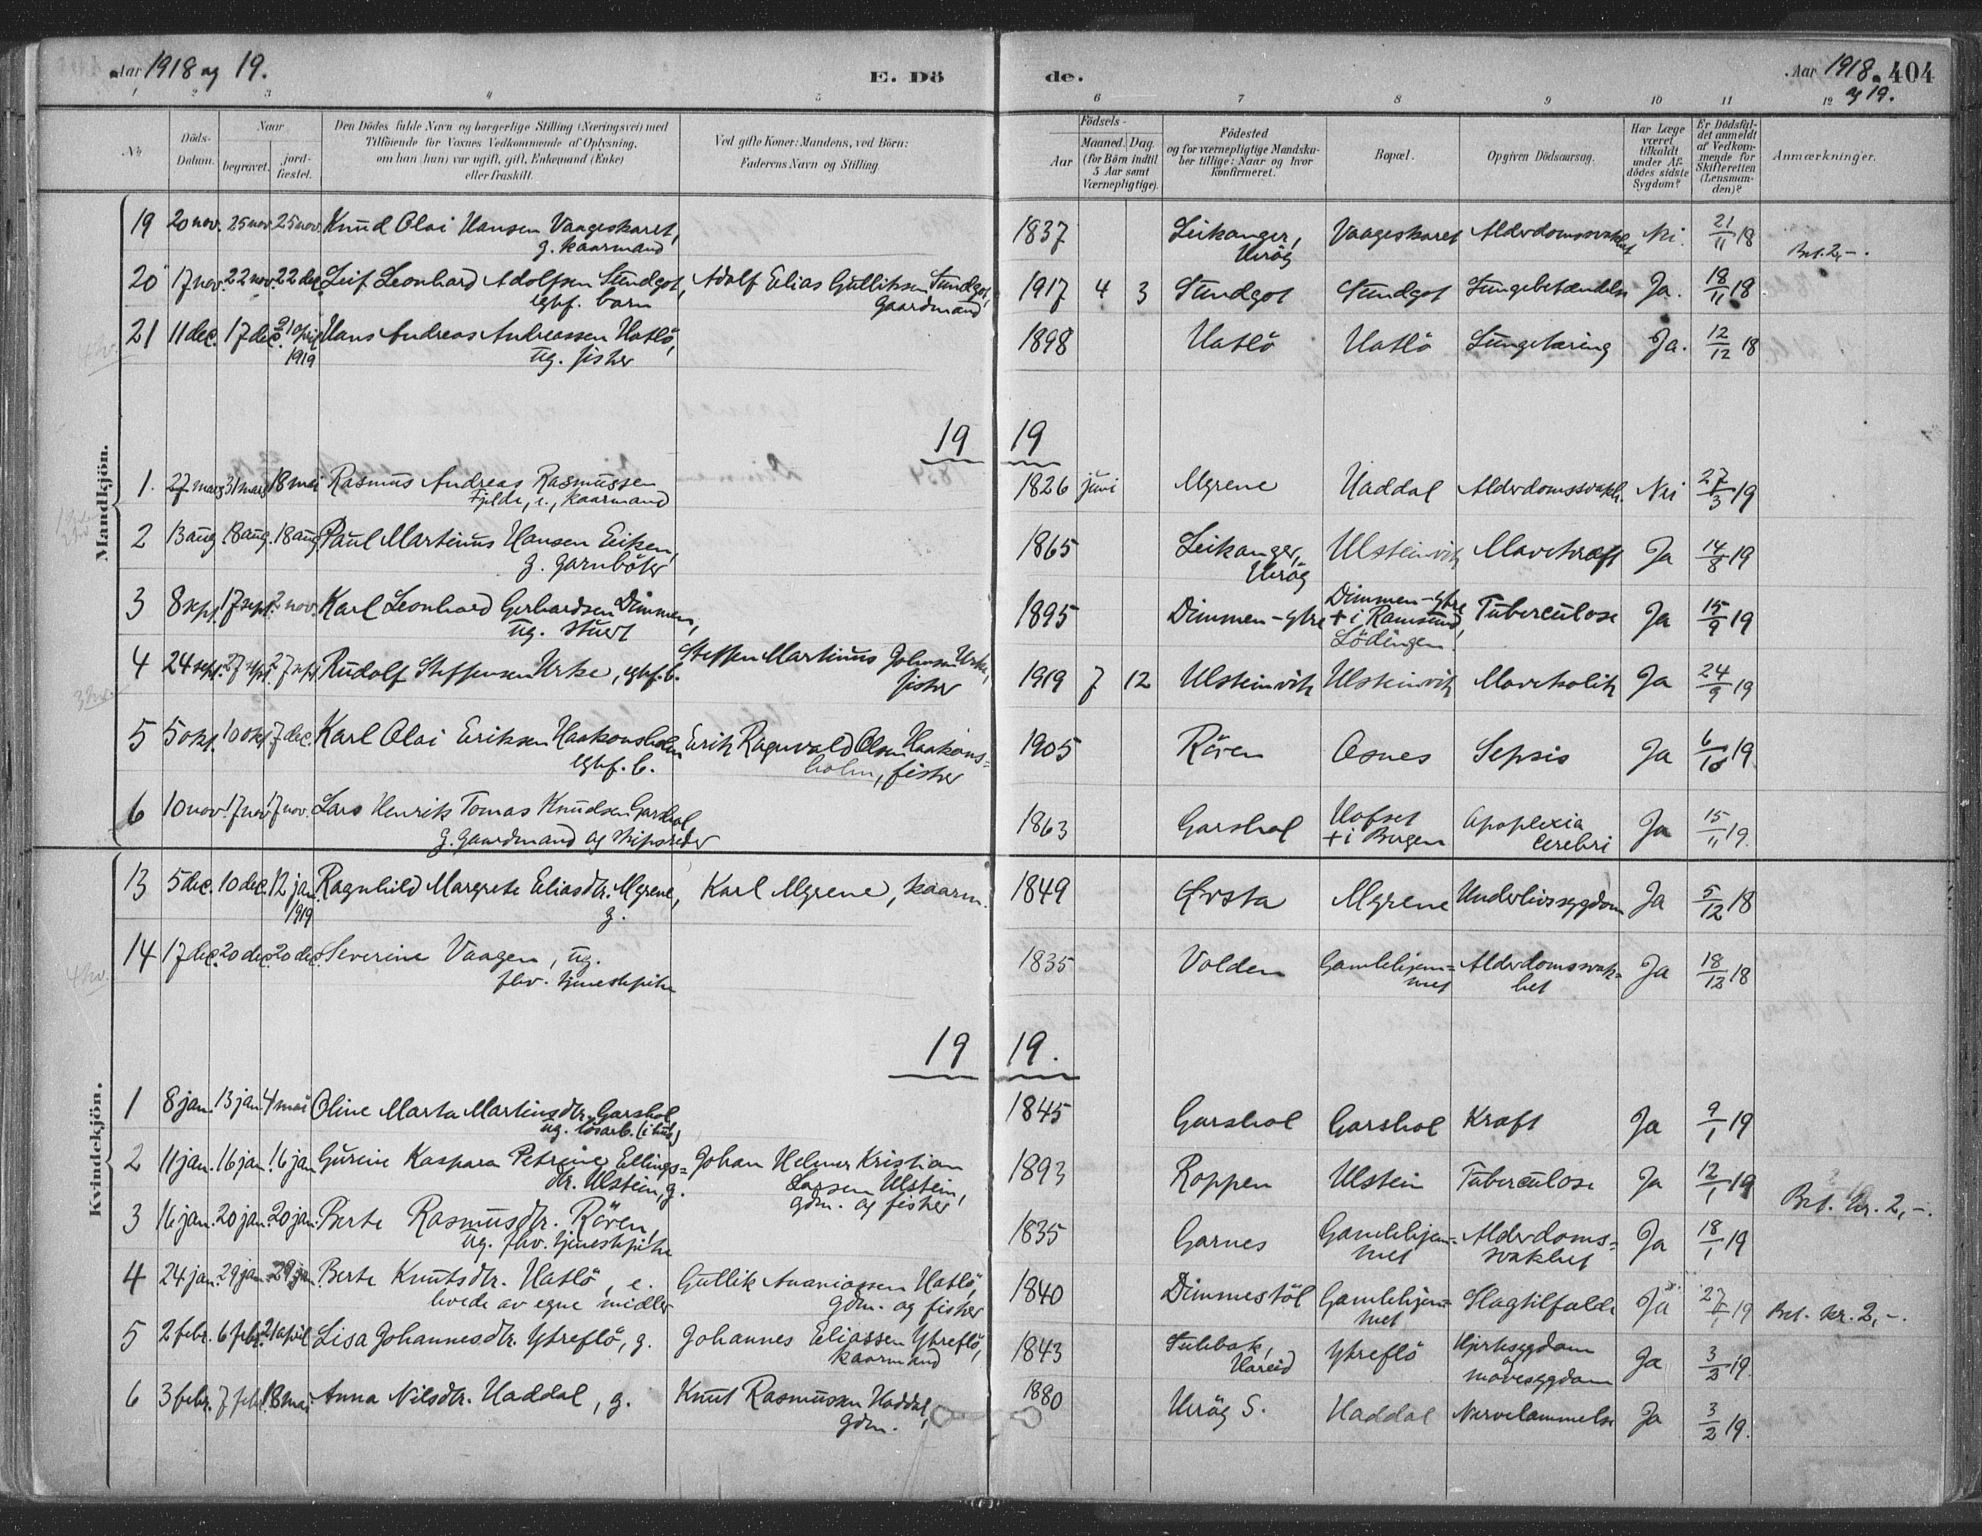 Aar 1918 og 19. E. Dö de. Aar 1918 og 19. 404
1 2 3 4 5 6 7 8 9 10 11 12
No
Döds-Datum.
Naar
begravet.
jord-fæstet.
Den Dödes fulde Navn og borgerlige Stilling (Næringsvei) med
Tilföiende for Voxnes Vedkommende af Oplysning,
om han (hun) var ugift, gift, Enkemand (Enke)
eller fraskilt.
Ved gifte Koner: Mandens, ved Börn:
Faderens Navn og Stilling.
Födsels-
Aar
Maaned. Dag.
(for Börn indtil
5 Aar samt
Værnepligtige).
Födested
og for værnepligtige Mandska-
ber tillige: Naar og hvor
konfirmeret.
Bopæl.
Opgiven Dödsaarsag.
Har Læge
været
tilkaldt
under Af-
dödes sidste
Sygdom?
Er Dödsfal-
det anmeldt
af Vedkom-
mende for
Skifteretten
(Lensman-
den)?
Anmærkninger.
Mandkjön.
19 20 nov. 25 nov. 25 nov. Knud Olai Hansen Vaageskaret, 1837 Leikanger, Vaageskaret Alderdomssvakhet Nei. 21/11 18
g. kaarmand Heröy Bet. 2,-.
20 17 nov. 22 nov. 22 dec. Leif Leonhard Adolfsen Sundgot, Adolf Elias Gulliksen Sundgot, 1917 4 3 Sundgot Sundgot Lungebetændelse Ja. 18/11 18
egtef. barn gaardmand
21 11 dec. 17 dec. 21 april Hans Andreas Andreassen Hatlö, 1898 Hatlö Hatlö Lungetæring Ja. 12/12 18
1919 ug. fisker
19 19
1. 27 mars 31 mars 18 mai Rasmus Andreas Rasmussen 1826 juni Myrene Haddal Alderdomssvakh. Nei 27/3 19
Fjelde, e., kaarmand
2 13 aug. 18 aug. 18 aug. Paul Martinus Hansen Eiken, 1865 Leikanger, Ulsteinvik Mavekræft Ja 14/8 19
g. garnböter Heröy
3 8 sept. 17 sept. 2 nov. Karl Leonhard Gerhardsen Dimmen, 1895 Dimmen-ytre Dimmen-ytre Tuberculose Ja 15/9 19
ug. stuert + i Ramsund,
Lödingen.
4 24 sept. 27 sept. 27 sept. Rudolf Steffensen Urke, egtef. b. Steffen Martinus Johnsen Urke, 1919 7 12 Ulsteinvik Ulsteinvik Mavekolik Ja 24/9 19
fisker
5 5 okt. 10 okt. 7 dec. Karl Olai Eriksen Haakonsholm Erik Ragnvald Olsen Haakons= 1905 Rören Osnes Sepsis Ja 6/10 19
egtef. b. holm, fisker
6 10 nov. 17 nov. 17 nov. Lars Henrik Tomas Knudsen Garshol 1863 Garshol Hofset Apoplexia Ja 15/11 19.
g. gaardmand og skipsreder + i Bergen Cerebri
Kvindekjön.
13 5 dec. 10 dec. 12 jan. Ragnhild Margrete Eliasdtr. Myrene, Karl Myrene, kaarm. 1849 Ørsta Myrene Underlivssygdom Ja 5/12 18
1919 g.
14 17 dec. 20 dec. 20 dec. Severine Vaagen, ug. 1835 Volden Gamlehjem= Alderdomssvak= Ja 18/12 18
fhv. tjenestpike met het
19 19.
1 8 jan. 13 jan. 4 mai Oline Marta Martinsdtr. Garshol 1845 Garshol Garshol Kræft Ja 9/1 19
ug. lösarb.
2 11 jan. 16 jan. 16 jan. Gurine Kaspara Petrine Ellings= Johan Helmer Kristian 1893 Roppen Ulstein Tuberculose Ja 12/1 19
dtr. Ulstein, g. Larsen Ulstein,
gdm. og fisker Bet. kr. 2,-.
3 16 jan. 20 jan. 20 jan. Berte Rasmusdtr. Rören, 1835 Garnes Gamlehjem= Alderdoms= Ja 18/1 19
ug. fhv. tjenestpike met svakhet
4 24 jan. 29 jan. 29 jan. Berte Knutsdtr. Hatlö, e. Gullik Ananiassen Hatlö, 1840 Dimmestöl Gamlehjem= Slagtilfælde Ja 27/1 19 Bet. kr. 2,-.
levede av egne midler gdm. og fisker met
5 2 febr. 6 febr. 21 april Lisa Johannesdtr. Ytreflö, g. Johannes Eliassen Ytreflö, 1843 Ytreflö Hjertesygdom Ja 3/2 19.
kaarmand Hareid og mavesygdom
6 3 febr. 7 febr. 18 mai Anna Nilsdtr. Haddal, g. Knut Rasmussen Haddal, 1880 Heröy S. Haddal Nervelammelse Ja 3/2 19.
gdm.